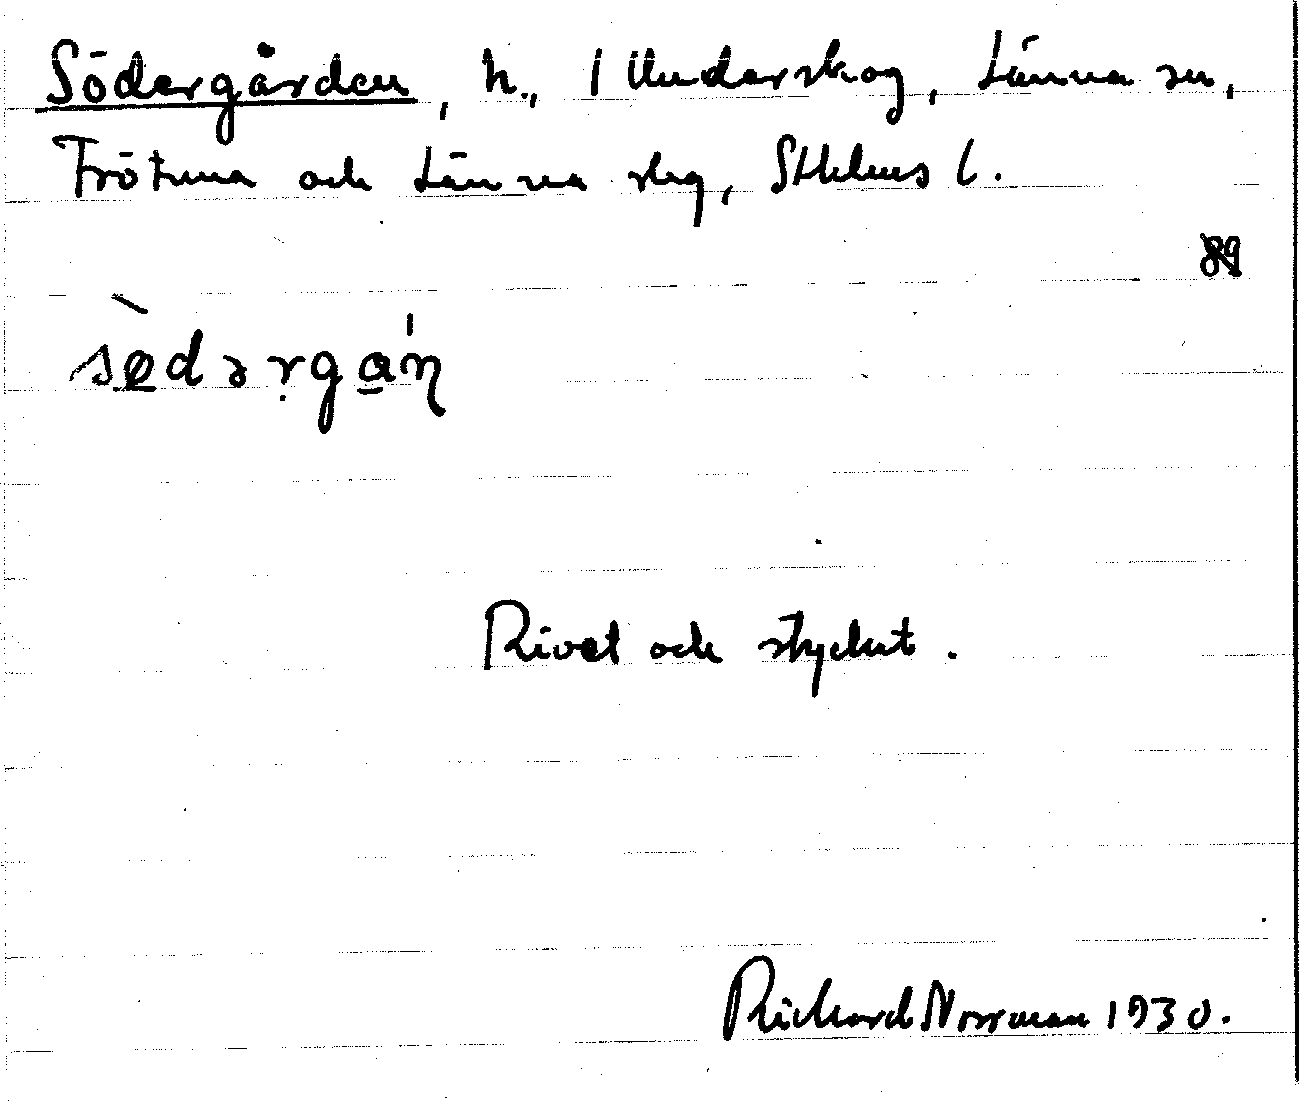 Södergården, h., 1 Underskog, Länna sn,
Frötuna och Länna skg, Sthlms l.
89
sø̀dərgɑ'ɳ
Rivet och styckat.
Richard Norrman 1930.